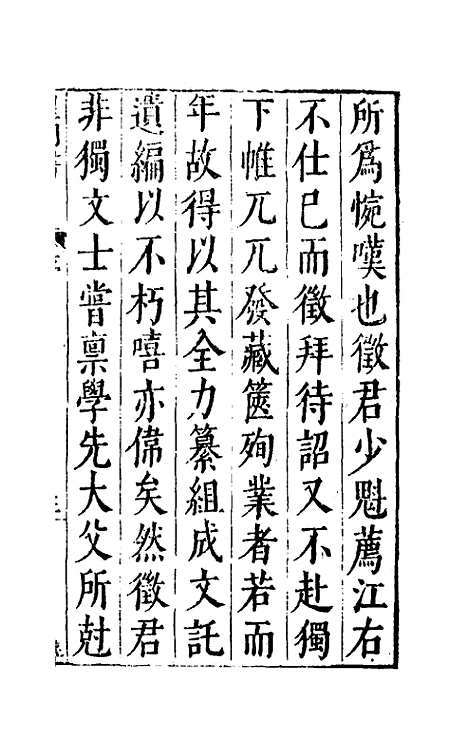 所爲惋嘆也徵君少魁薦江右
不仕已而徵拜待詔又不赴獨
下帷兀兀發藏篋殉業者若而
年故得以其全力纂組成文託
遺編以不朽嘻亦偉矣然徵君
非獨文士嘗禀學先大父所尅